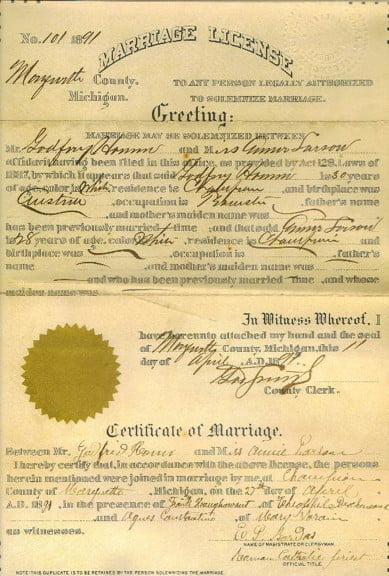 No. 101 1891
MARRIAGE LICENSE
Marquette County,
Michigan.
TO ANY PERSON LEGALLY AUTHORIZED
TO SOLEMNIZE MARRIAGE.
Greeting:
MARRIAGE MAY BE SOLEMNIZED BETWEEN
Mr. Godfrey and M rs
affidavit having been filed in this office, as provided by Act 128, Laws of
1887, by which it appears that said Godfrey is 30 years
of age, color is White, residence is Champion, and birthplace was
Austria, occupation is, father's
name, and mother's maiden name was
has been previously married time, and that said
is 28 years of age, color White, residence is Champion and
birthplace was, occupation is, father's
name, and mother's maiden name was
, and who has been previously married time, and whose
maiden name was
In Witness Whereof, I
have hereunto attached my hand and the seal
of Marquette County, Michigan, this 11
day of April A.D. 18 91
County Clerk.
Certificate of Marriage.
Between Mr. Godfred and M iss Annie
I hereby certify that, in accordance with the above license, the persons
herein mentioned were joined in marriage by me, at Champion
County of Marquette, Michigan, on the 27th day of April
A.D. 1891, in the presence of Frank, of
, and Agnes, of
as witnesses.
NAME OF MAGISTRATE OR CLERGYMAN.
Roman Catholic priest
OFFICIAL TITLE.
NOTE—THIS DUPLICATE IS TO BE RETAINED BY THE PERSON SOLEMNIZING THE MARRIAGE